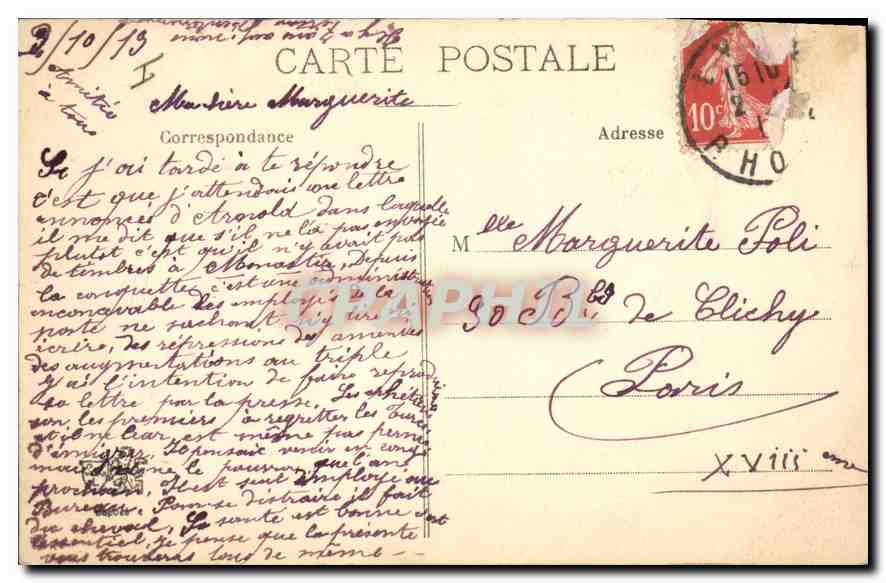 2/10/13
CARTE POSTALE
Amitié
à tous
Ma chère Marguerite
Correspondance
Adresse
10c
15 10
P. HO
Si j'ai tardé à te répondre
c'est que j'attendais une lettre
annoncée d'Arnold dans laquelle
il me dit que s'il ne l'a pas envoyée
plutot c'est qu'il n'y avait pas
de timbres à Monastir, depuis
la conquette c'est une administration
inconcevable des employés de la
poste ne sachant ni lire ni
écrire, des répressions des amendes
des augmentations au triple
j'ai l'intention de faire reprod
sa lettre par la presse. Les chrétiens
son les premiers à regretter les Turcs
et il ne leur est même pas permis
d'émigrer. Il pensait venir en congé
mai ne le pourra que l'ané
prochain. Il est seul employé au
Bureau. Pour se distraire il fait
du cheval, Sa santé est bonne c'est
l'essentiel, je pense que la présente
vous trouveras tous de même
Mlle Marguerite Poli
90 Bd de Clichy
Paris
XVIIIeme
CPAPHIL